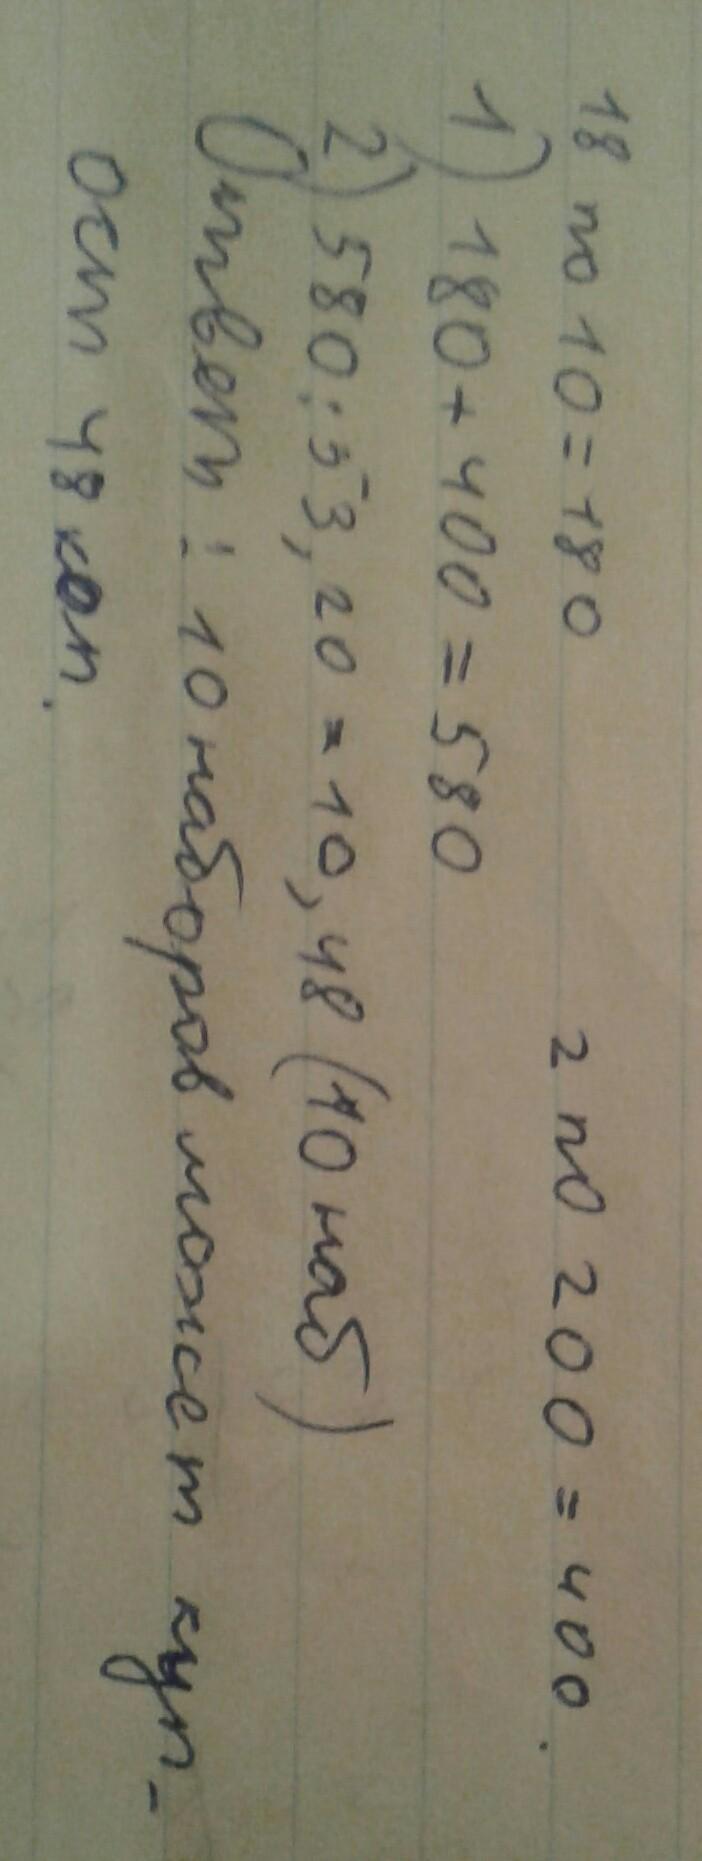 18 по 10 = 180 2 по 200 = 400.
1) 180 + 400 = 580
2) 580 : 53,20 = 10,48 (10 наб)
Ответ: 10 наборов может куп-
ост 48 коп.